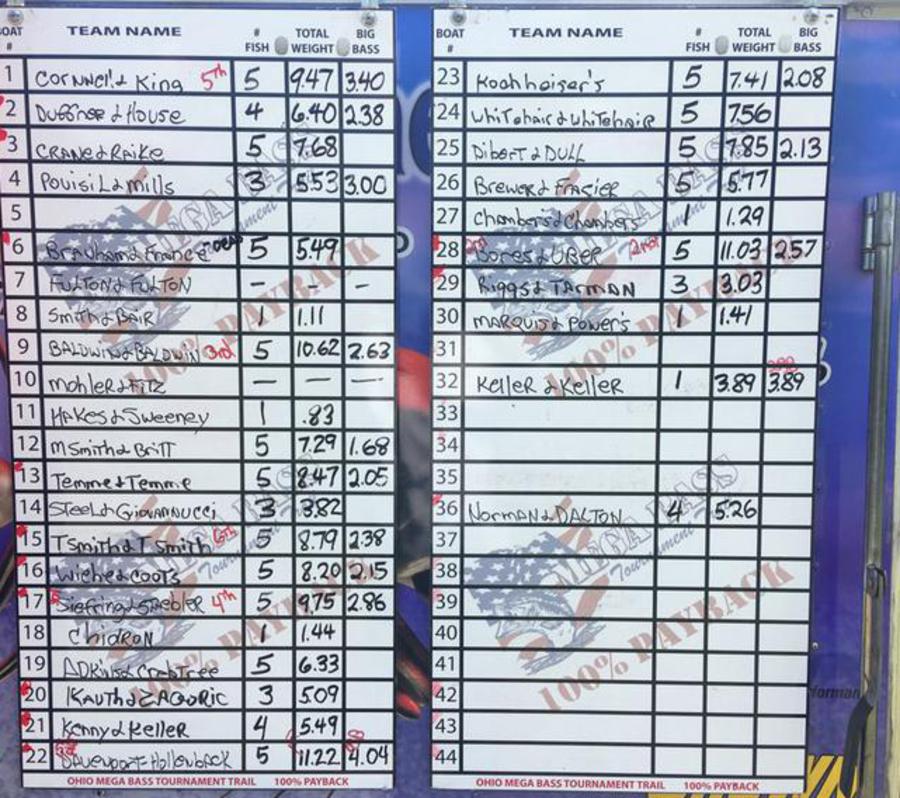 BOAT # TEAM NAME # FISH TOTAL WEIGHT BIG BASS
1 Cornwell & King 5th 5 9.47 3.40
2 Duffner & House 4 6.40 2.38
3 CRANE & RAIKE 5 7.68
4 & Mills 3 5.53 3.00
5
6 Branham & France 1-DEAD 5 5.49
7 FULTON & FULTON - - -
8 Smith & BAIR 1 1.11
9 BALDWIN & BALDWIN 3rd 5 10.62 2.63
10 Mohler & FITZ - - -
11 HAKES & Sweeney 1 .83
12 M Smith & Britt 5 7.29 1.68
13 Temme & Temme 5 8.47 2.05
14 STEEL & GIOVANNUCCI 3 3.82
15 T Smith & T Smith 6th 5 8.79 2.38
16 Wiche & COOTS 5 8.20 2.15
17 Siefring & 4th 5 9.75 2.86
18 ChidRON 1 1.44
19 ADKINS & CrabTree 5 6.33
20 KAUTH & ZAGORIC 3 5.09
21 Kenny & Keller 4 5.49
22 1st DAVENPORT-Hollenback 5 11.22 4.04
OHIO MEGA BASS TOURNAMENT TRAIL 100% PAYBACK
BOAT # TEAM NAME # FISH TOTAL WEIGHT BIG BASS
23 5 7.41 2.08
24 Whitehair & Whitehair 5 7.56
25 Dibert & DULL 5 7.85 2.13
26 Brewer & Frazier 5 5.77
27 Chambers & Chambers 1 1.29
28 & UBER 2nd 5 11.03 2.57
29 Riggs & TARMAN 3 3.03
30 MARQUIS & Power's 1 1.41
31
32 Keller & Keller 1 3.89 3.89
33
34
35
36 Norman & DALTON 4 5.26
37
38
39
40
41
42
43
44
OHIO MEGA BASS TOURNAMENT TRAIL 100% PAYBACK
MEGA BASS
Tournament
100% PAYBACK